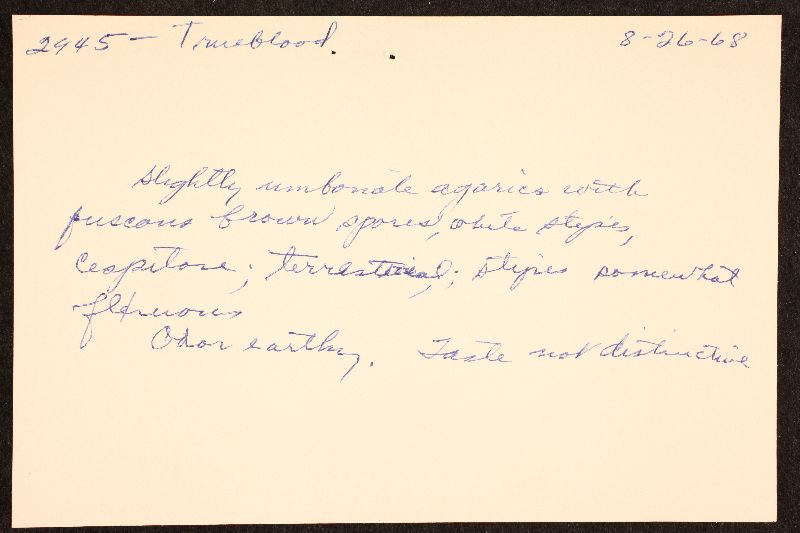 2945 - Trueblood. 8-26-68
Slightly umbonate agarics with
fuscous brown spores, white stipes,
Cespitose; terrestrial; stipes somewhat
flexuous
Odor earthy. Taste not distinctive